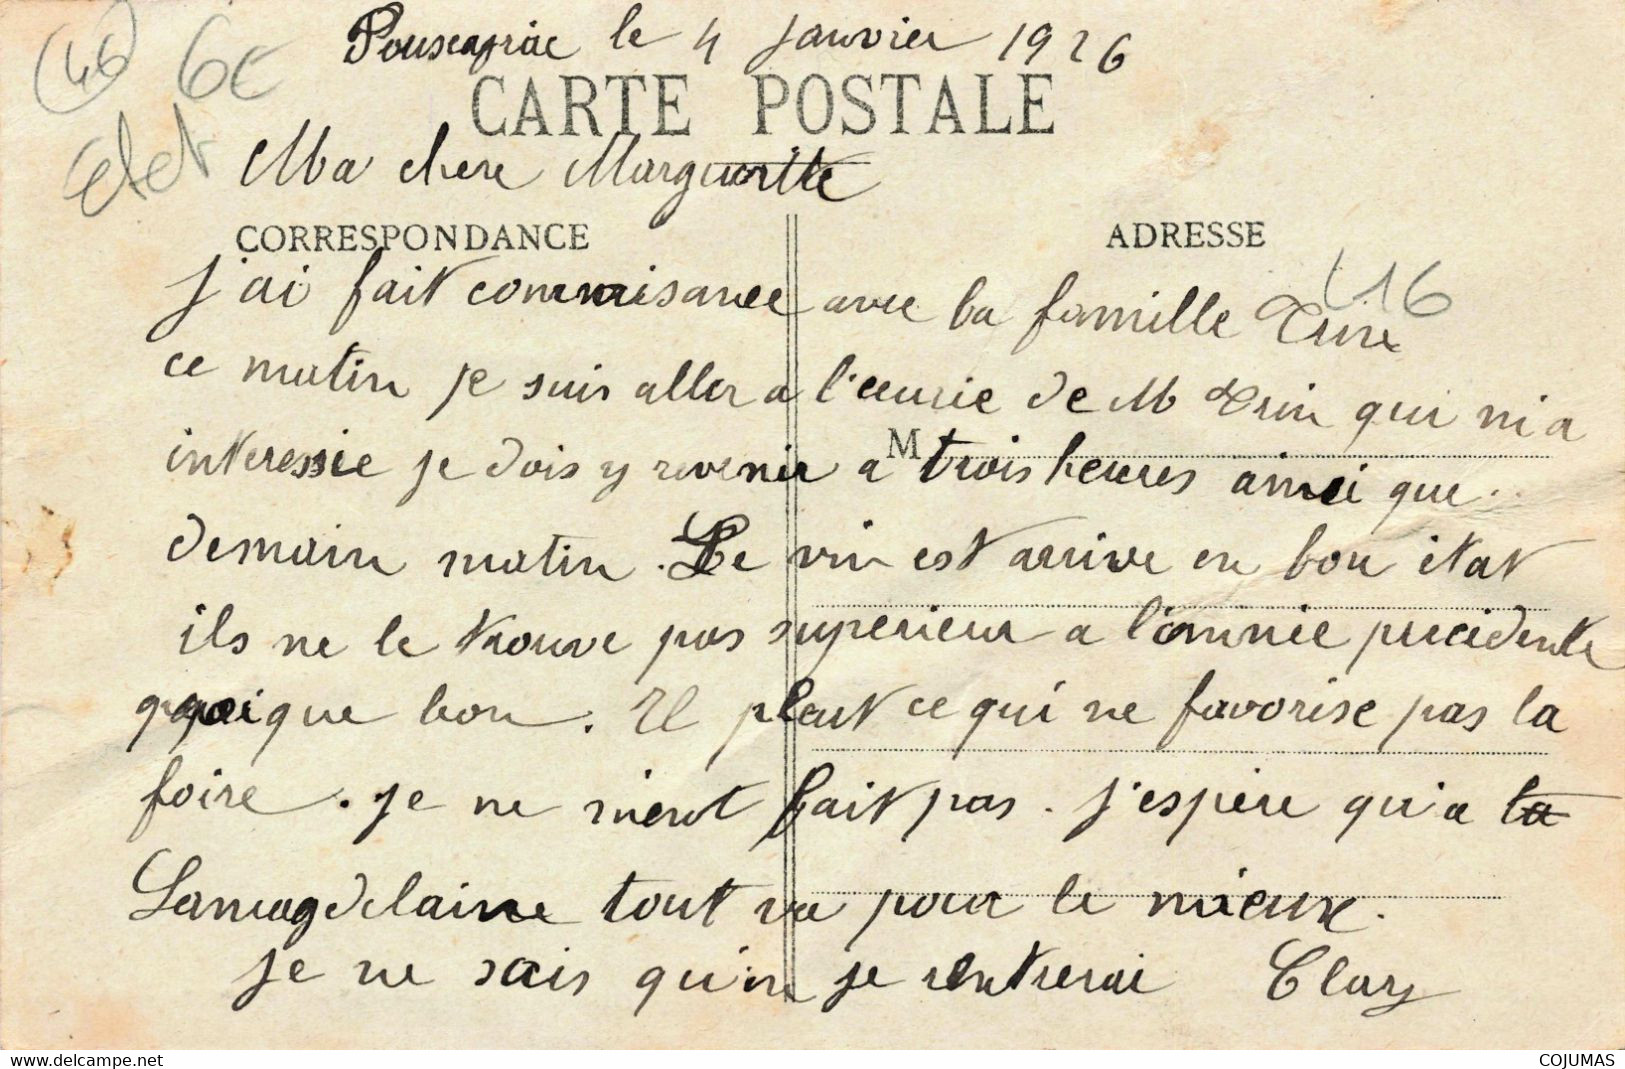 (46) 6€
le 4 Janvier 1926
CARTE POSTALE
Ma chere Marguerite
CORRESPONDANCE
ADRESSE
46
J'ai fait connaisance avec la famille
ce matin je suis aller a l'ecurie de M qui m'a
interessée je dois y revenir a trois heures ainsi que
M
demain matin. Le vin est arrive en bon état
ils ne le trouve pas superieur a l'année precidente
quoique bon. Il pleut ce qui ne favorise pas la
foire. Je ne m'en fait pas. J'espère qu'a la
Lamagdelaine tout va pour le mieux.
Je ne sais qu'n je rentrerai Clary
COJUMAS
www.delcampe.net